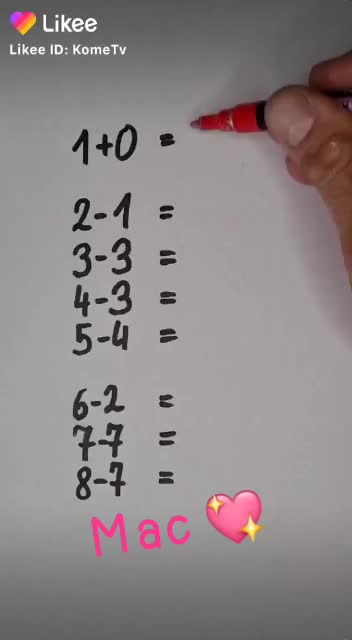 Likee
Likee ID: KomeTv
1+0 =
2-1 =
3-3 =
4-3 =
5-4 =
6-2 =
7-7 =
8-7 =
Mac